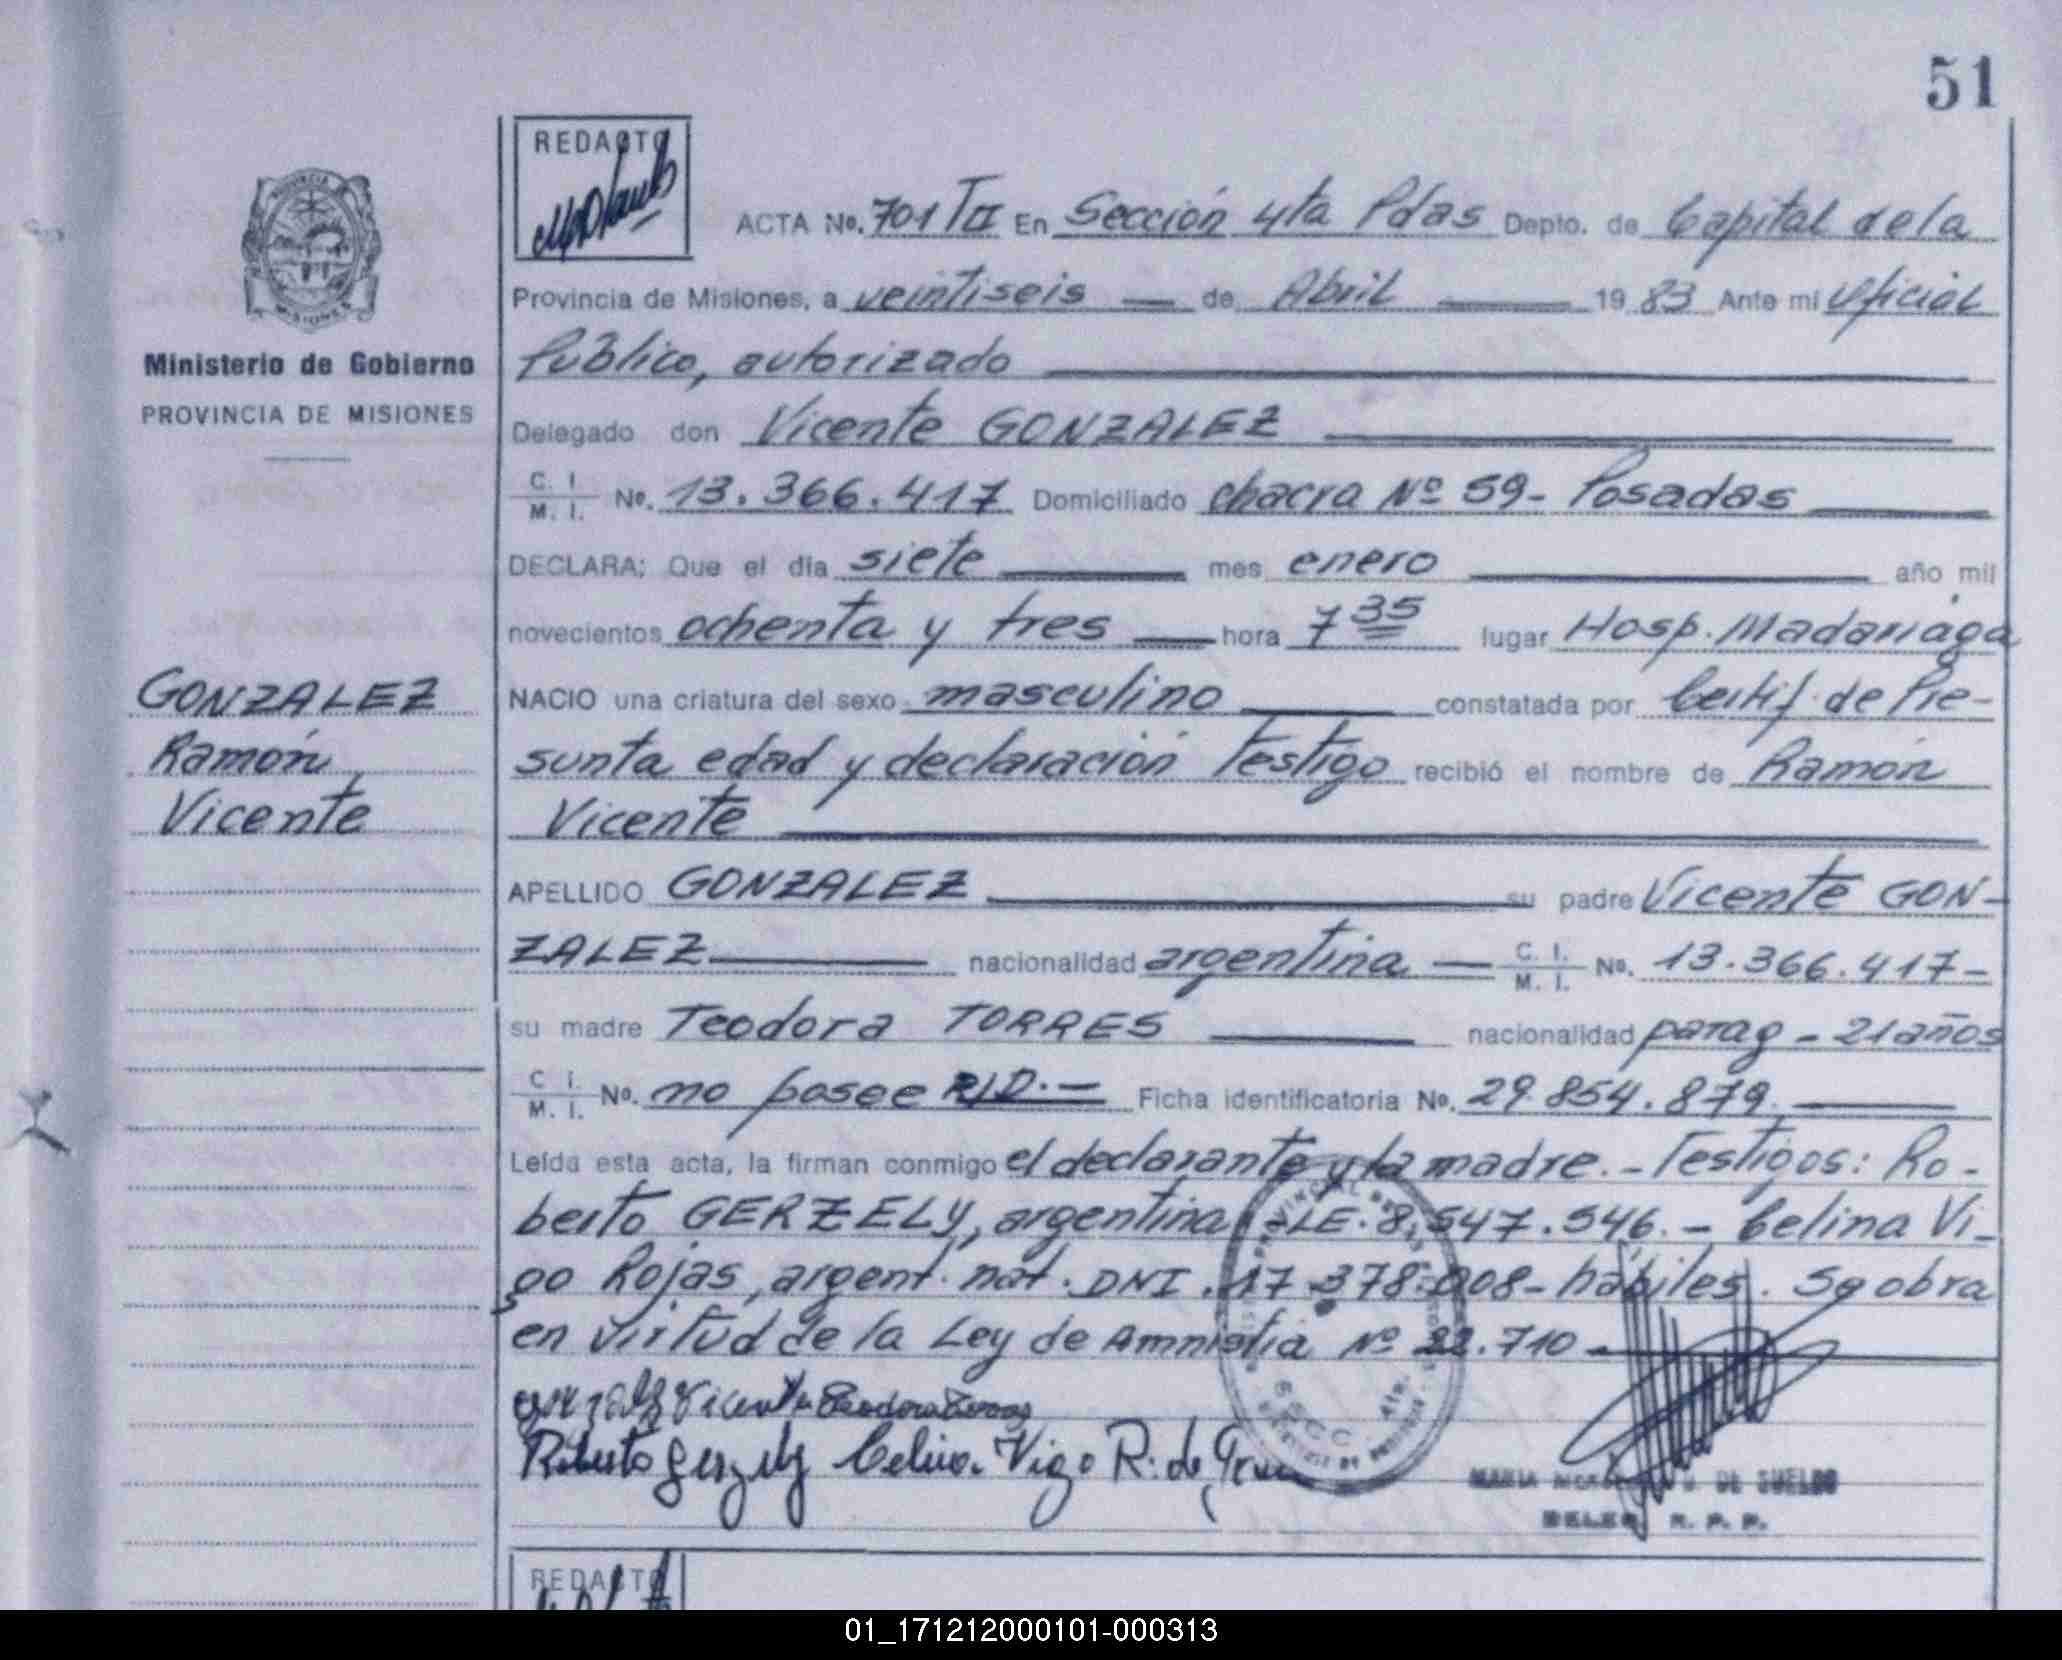 51
REDACTO
ACTA No. 701 TII En Sección 4ta Pdas Depto. de Capital de la
Provincia de Misiones, a veintiseis de Abril 19 83 Ante mí Oficial
Público, autorizado
Ministerio de Gobierno
PROVINCIA DE MISIONES
Delegado don Vicente GONZALEZ
C. I. M. I. No. 13.366.417 Domiciliado chacra Nº 59- Posadas
DECLARA; Que el día siete mes enero año mil
novecientos ochenta y tres hora 7 35 lugar Hosp. Madariaga
NACIO una criatura del sexo masculino constatada por Certif. de Pre-
sunta edad y declaración Testigo recibió el nombre de Ramón
Vicente
GONZALEZ
Ramón
Vicente
APELLIDO GONZALEZ su padre Vicente GON-
ZALEZ nacionalidad argentina C. I. M. I. No. 13.366.417-
su madre Teodora TORRES nacionalidad parag - 21 años
C. I. M. I. No. no posee Ficha identificatoria No. 29.854.879
Leída esta acta, la firman conmigo el declarante y la madre.- Testigos: Ro-
berto GERZELY, argentina -LE. 8.547.546.- Celina Vi-
go Rojas, argent. nat. DNI. 17.378.008- hábiles. Se obra
en virtud de la Ley de Amnistia Nº 22.710
Gonzalez Vicente Teodora Torres
Roberto Gerzely Celina Vigo R. de
MARIA DE SUELDO
DELEG. R. P. P.
REDACTO
01_171212000101-000313